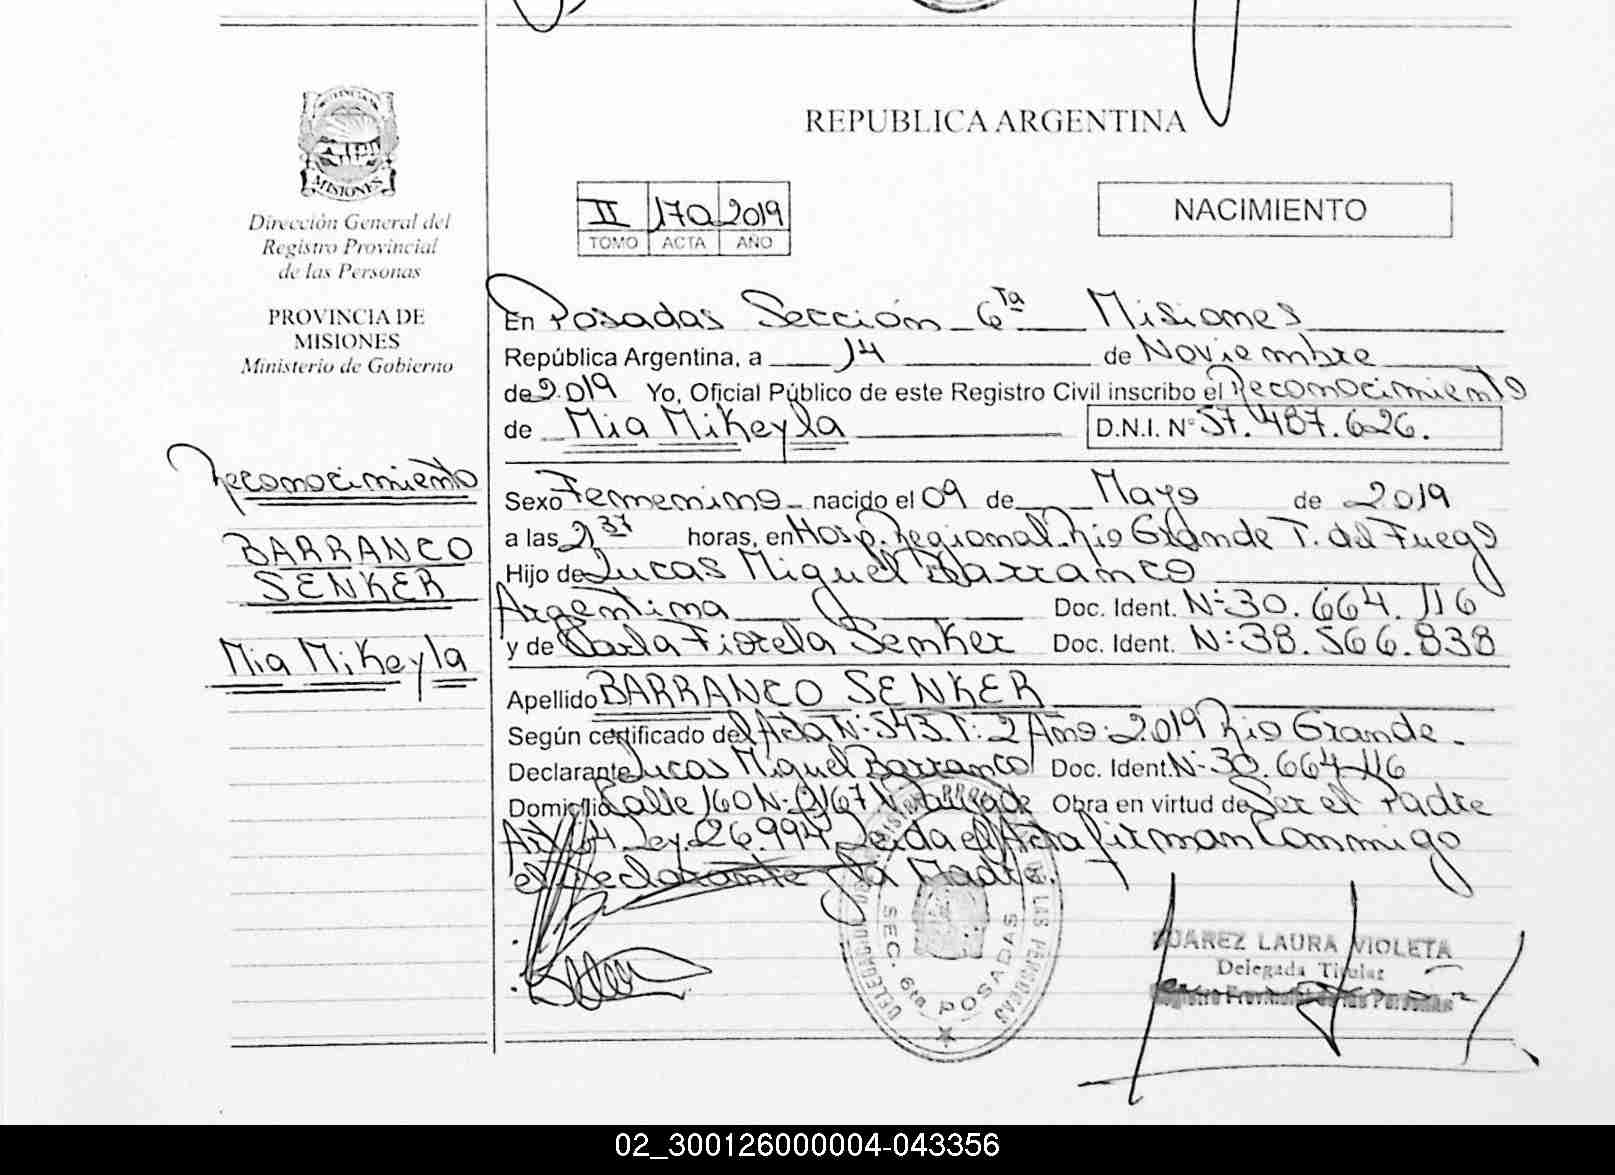 MISIONES
Dirección General del
Registro Provincial
de las Personas
PROVINCIA DE
MISIONES
Ministerio de Gobierno
Reconocimiento
BARRANCO
SENKER
Mia Mikeyla
REPUBLICA ARGENTINA
II 170 2019
TOMO ACTA AÑO
NACIMIENTO
En Posadas Sección 6ta Misiones
República Argentina, a 14 de Noviembre
de 2.019 Yo, Oficial Público de este Registro Civil inscribo el Reconocimiento
de Mia Mikeyla D.N.I. N° 57.487.626.
Sexo Femenino nacido el 09 de Mayo de 2019
a las 21 37 horas, en Hosp. Regional. Rio Grande T. del Fuego
Hijo de Lucas Miguel Barranco
Argentina Doc. Ident. Nº 30.664.116
y de Carla Fiorela Senker Doc. Ident. N: 38.566.838
Apellido BARRANCO SENKER
Según certificado del Acta N: 543. T: 2 Año: 2.019 Rio Grande.
Declarante Lucas Miguel Barranco Doc. Ident. Nº 30.664.116
Domicilio Calle 160 N: Obra en virtud de Ser el Padre
Ley. 26.994 Leida el Acta firman Conmigo
el Declarante y la Madre.
DE LAS PERSONAS
SEC. 6ta POSADAS
SUAREZ LAURA VIOLETA
Delegada Titular
Registro Provincial de las Personas
02_300126000004-043356